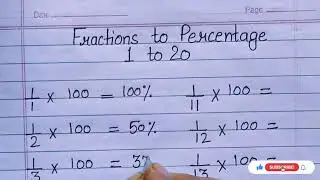 Date
Page
Fractions to Percentage
1 to 20
1/1 × 100 = 100%
1/11 × 100 =
1/2 × 100 = 50%
1/12 × 100 =
1/3 × 100 = 33
1/13 × 100 =
SUBSCRIBE